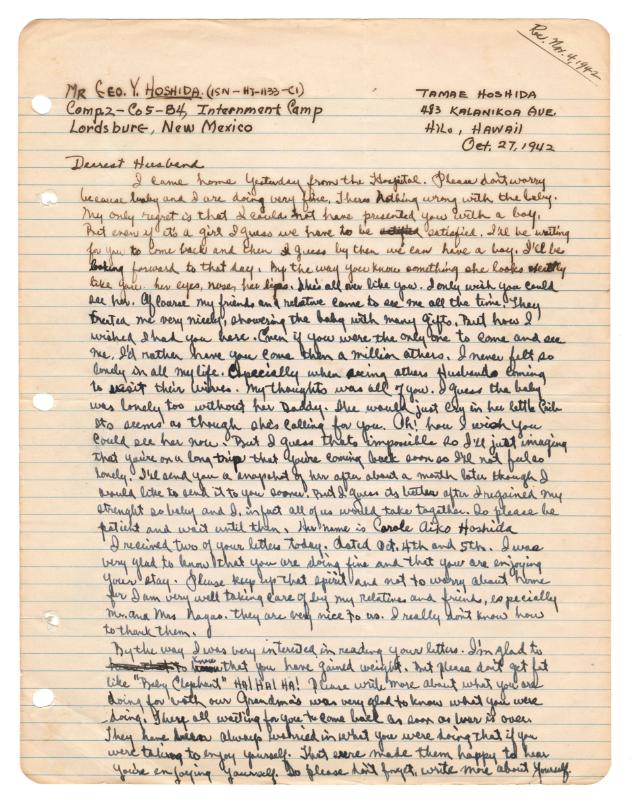 Rec. Nov. 4, 1942
Mr Geo. Y. Hoshida. (ISN-HJ-1133-CI)
Comp2-Co5-B4, Internment Camp
Lordsburg, New Mexico
Tamae Hoshida
483 Kalanikoa Ave.
Hilo, Hawaii
Oct. 27, 1942
Dearest Husband
I came home yesterday from the Hospital. Please don't worry
because baby and I are doing very fine. Theres nothing wrong with the baby.
My only regret is that I could not have presented you with a boy.
But even if it's a girl I guess we have to be satisfied. I'll be waiting
for you to come back and then I guess by then we can have a boy. I'll be
looking forward to that day. By the way you know something she looks exactly
like you. her eyes, nose, her lips. She's all over like you. I only wish you could
see her. Of course my friends and relative came to see me all the time. They
treated me very nicely, showering the baby with many gifts. But how I
wished I had you here. Even if you were the only one to come and see
me, I'd rather have you come then a million others. I never felt so
lonely in all my life. Especially when seeing others Husbands coming
to visit their wives. My thoughts was all of you. I guess the baby
was lonely too without her Daddy. She would just cry in her little Crib
Its seems as though she's calling for you. Oh! how I wish you
could see her now. But I guess thats impossible so I'll just imagine
that you're on a long trip that you're coming back soon so I'll not feel so
lonely. I'll send you a snapshot of her after about a month later though I
would like to send it to you sooner. But I guess its better after I regained my
strenght so baby and I, in fact all of us would take together. So please be
patient and wait until then. Her name is Carole Aiko Hoshida
I received two of your letters today. dated Oct. 4th and 5th. I was
very glad to know that you are doing fine and that you are enjoying
your stay. Please keep up that spirit and not to worry about home
for I am very well taking care of by my relatives and friend, especially
Mr. and Mrs Nagao. they are very nice to us. I really don't know how
to thank them.
By the way I was very interested in reading your letters. I'm glad to
know that you have gained weight. But please don't get fat
like "Baby Elephant" HA! HA! HA! Please write more about what you are
doing for both our Grandma's was very glad to know what you were
doing. There all waiting for you to come back as soon as war is over.
They have been always worried in what you were doing that if you
were taking to enjoy yourself. That were made them happy to hear
you're enjoying yourself. So please don't forget, write more about yourself.